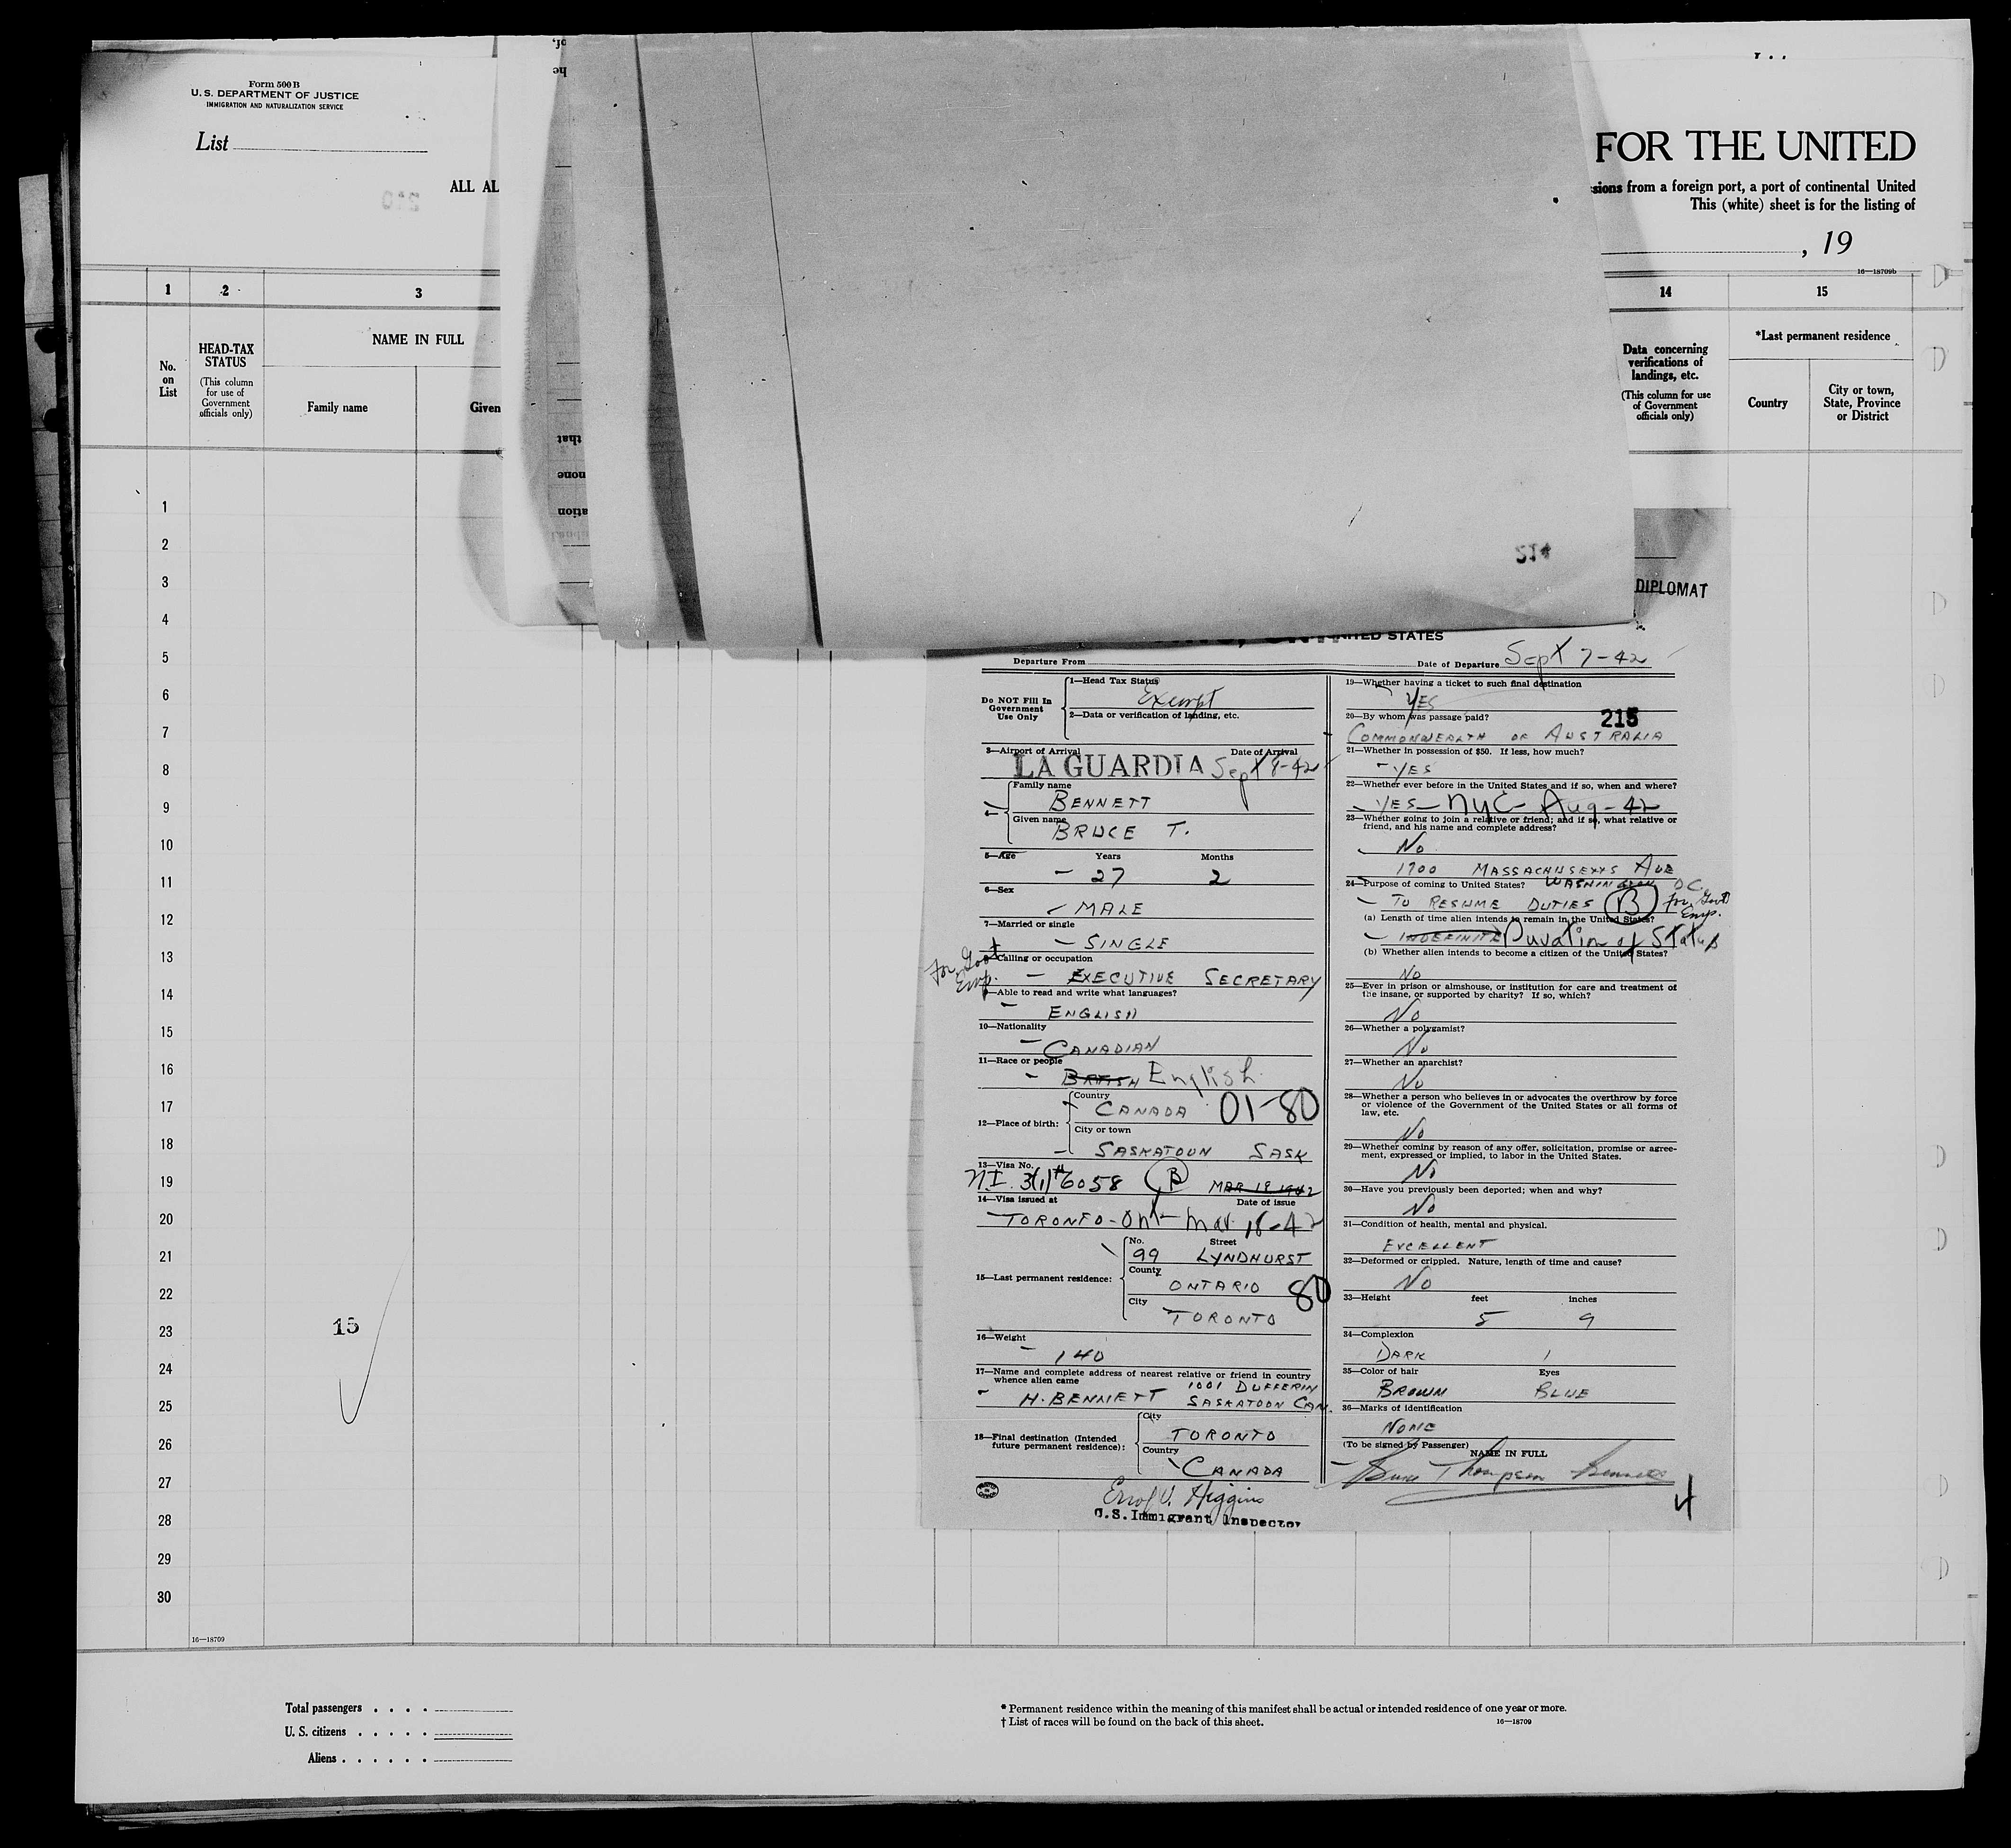 Form 500 B
U. S. DEPARTMENT OF JUSTICE
IMMIGRATION AND NATURALIZATION SERVICE
List
ALL AL
FOR THE UNITED
sions from a foreign port, a port of continental United
This (white) sheet is for the listing of
, 19
16—18709b
1
2
3
14
15
No.
on
List
HEAD-TAX
STATUS
(This column
for use of
Government
officials only)
NAME IN FULL
Family name
Given
Data concerning
verifications of
landings, etc.
(This column for use
of Government
officials only)
*Last permanent residence
Country
City or town,
State, Province
or District
210
of,
he
that
none
ation
214
1
2
3
4
5
6
7
8
9
10
11
12
13
14
15
16
17
18
19
20
21
22
23
24
25
26
27
28
29
30
15
DIPLOMAT
UNITED STATES
Departure From
Date of Departure Sept 7-42
Do NOT Fill In
Government
Use Only
1—Head Tax Status
Exempt
2—Data or verification of landing, etc.
3—Airport of Arrival
Date of Arrival
LA GUARDIA Sept 8-42
4—
Family name
BENNETT
Given name
BRUCE T.
5—Age Years Months
27 2
6—Sex
MALE
7—Married or single
SINGLE
For Govt
Emp.
8—Calling or occupation
EXECUTIVE SECRETARY
9—Able to read and write what languages?
ENGLISH
10—Nationality
CANADIAN
11—Race or people
BRITISH English
12—Place of birth:
Country
CANADA 01-80
City or town
SASKATOON SASK
13—Visa No.
N.I. 3(1) #6058 B MAR 18 1942
14—Visa issued at Date of issue
TORONTO - Ont - Mar 18-42
15—Last permanent residence:
No. Street
99 LYNDHURST
County
ONTARIO 80
City
TORONTO
16—Weight
140
17—Name and complete address of nearest relative or friend in country
whence alien came
1001 DUFFERIN
H. BENNETT SASKATOON CAN.
18—Final destination (Intended
future permanent residence):
City
TORONTO
Country
CANADA
Errol V. Higgins
U.S. Immigrant Inspector
19—Whether having a ticket to such final destination
YES
20—By whom was passage paid?
215
COMMONWEALTH OF AUSTRALIA
21—Whether in possession of $50. If less, how much?
YES
22—Whether ever before in the United States and if so, when and where?
YES - NYC - Aug - 42
23—Whether going to join a relative or friend; and if so, what relative or
friend, and his name and complete address?
No
1700 MASSACHUSETTS AVE
24—Purpose of coming to United States? WASHINGTON D.C.
TO RESUME DUTIES B For Govt
Emp.
(a) Length of time alien intends to remain in the United States?
INDEFINITE Duration of Status
(b) Whether alien intends to become a citizen of the United States?
No
25—Ever in prison or almshouse, or institution for care and treatment of
the insane, or supported by charity? If so, which?
No
26—Whether a polygamist?
No
27—Whether an anarchist?
No
28—Whether a person who believes in or advocates the overthrow by force
or violence of the Government of the United States or all forms of
law, etc.
No
29—Whether coming by reason of any offer, solicitation, promise or agree-
ment, expressed or implied, to labor in the United States.
No
30—Have you previously been deported; when and why?
No
31—Condition of health, mental and physical.
EXCELLENT
32—Deformed or crippled. Nature, length of time and cause?
No
33—Height feet inches
5 9
34—Complexion
DARK
35—Color of hair Eyes
BROWN BLUE
36—Marks of identification
NONE
(To be signed by Passenger)
NAME IN FULL
Bruce Thompson Bennett
4
16—18709
Total passengers
U. S. citizens
Aliens
* Permanent residence within the meaning of this manifest shall be actual or intended residence of one year or more.
† List of races will be found on the back of this sheet.
16—18709